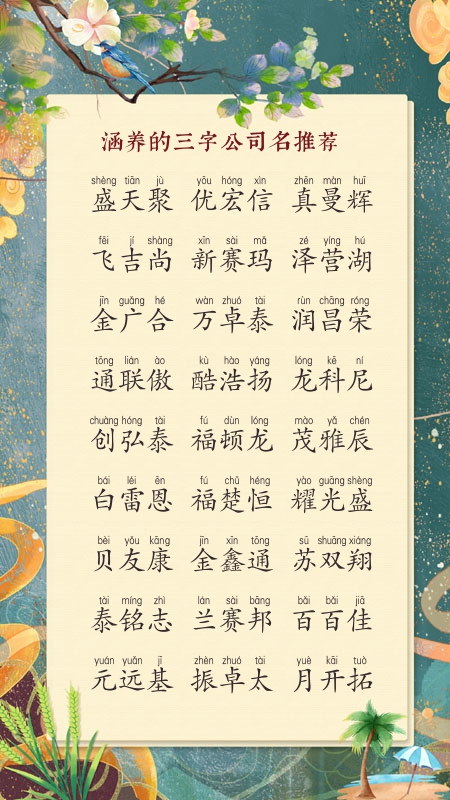 涵养的三字公司名推荐
shèng tiān jù yōu hóng xìn zhēn màn huī
盛天聚 优宏信 真曼辉
fēi jí shàng xīn sài mǎ zé yíng hú
飞吉尚 新赛玛 泽营湖
jīn guǎng hé wàn zhuó tài rùn chāng róng
金广合 万卓泰 润昌荣
tōng lián ào kù hào yáng lóng kē ní
通联傲 酷浩扬 龙科尼
chuàng hóng tài fú dùn lóng mào yǎ chén
创弘泰 福顿龙 茂雅辰
bái léi ēn fú chǔ héng yào guāng shèng
白雷恩 福楚恒 耀光盛
bèi yǒu kāng jīn xīn tōng sū shuāng xiáng
贝友康 金鑫通 苏双翔
tài míng zhì lán sài bāng bǎi bǎi jiā
泰铭志 兰赛邦 百百佳
yuán yuǎn jī zhèn zhuó tài yuè kāi tuò
元远基 振卓太 月开拓